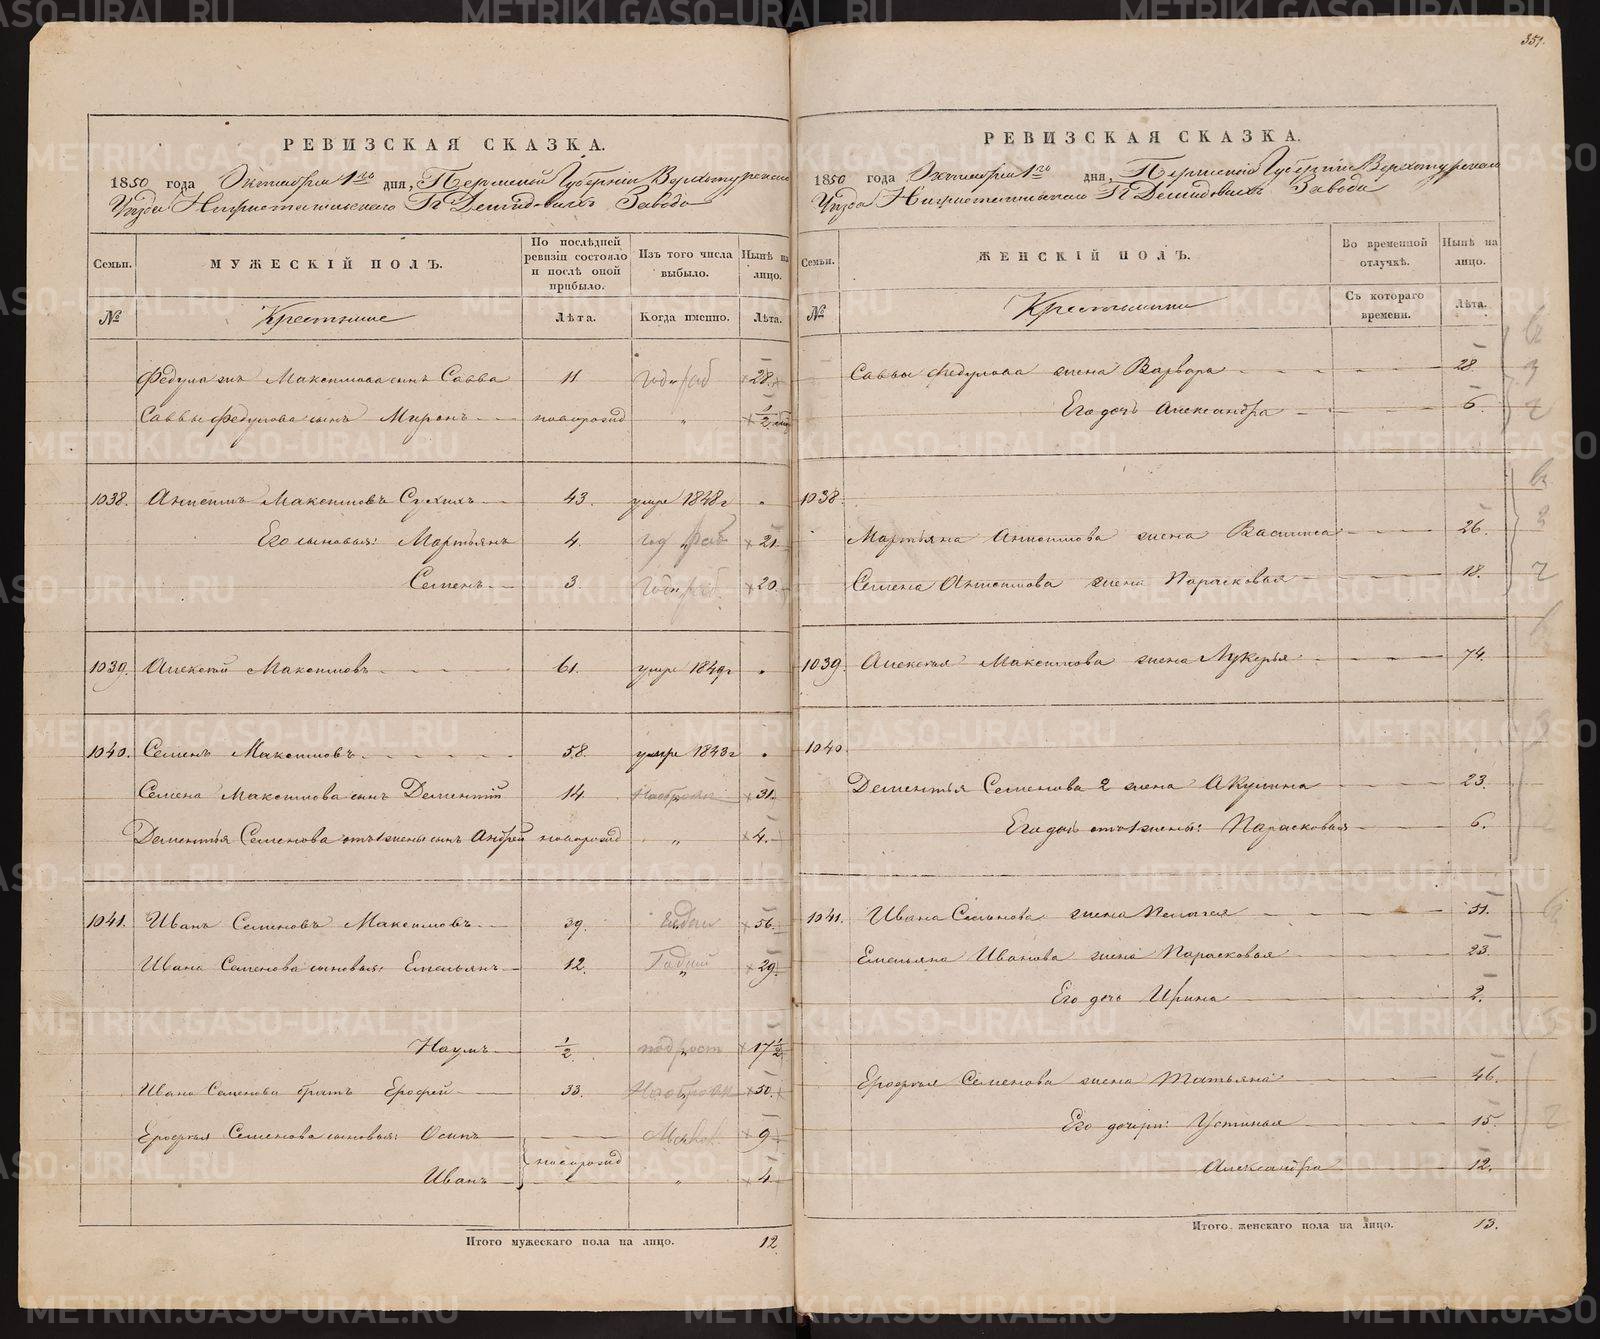 351.
РЕВИЗСКАЯ СКАЗКА.
1850 года Октября 1го дня, Пермской Губернии Верхотурскаго
Уезда Нижнетагильскаго Гг Демидовыхъ Завода
Семьи. МУЖЕСКІЙ ПОЛЪ. По послѣдней ревизіи состояло и послѣ оной прибыло. Изъ того числа выбыло. Нынѣ на лицо.
№ Крестьяне Лѣта. Когда именно. Лѣта.
Федула сынъ Савва 11 28.
Саввы Федулова сынъ Миронъ новорожд " 1/2
1038. Максимовъ Сухихъ 43. умре 1848г
Его сыновья: Мартьянъ 4. 21.
Семенъ 3. 20.
1039. Алексей Максимовъ 61. умре 1849г
1040. Семенъ Максимовъ 58. умре 1843г
Семена Максимова сынъ Дементий 14. 31.
Дементья Семенова отъ 1 жены сынъ Андрей новорожд " 4.
1041. Иванъ Семеновъ Максимовъ 39. 56.
Ивана Семенова сыновья: Емельянъ 12. 29.
Наумъ 1/2 подрост 17 1/2
Ивана Семенова братъ Ерофей 33. 50.
Ерофея Семенова сыновья: Осипъ 9
новорожд
Иванъ " 4.
Итого мужескаго пола на лицо. 12.
РЕВИЗСКАЯ СКАЗКА.
1850 года Октября 1го дня, Пермской Губернии Верхотурскаго
Уезда Нижнетагильскаго Гг Демидовыхъ Завода
Семьи. ЖЕНСКІЙ ПОЛЪ. Во временной отлучкѣ. Нынѣ на лицо.
№ Крестьянки Съ котораго времени. Лѣта.
Саввы Федулова жена Варвара 28.
Его дочь Александра 6.
1038.
Мартьяна жена Василиса 26.
Семена жена Парасковья 18.
1039. Алексея Максимова жена Лукерья 74.
1040.
Дементья Семенова 2 жена Акулина 23.
Его дочь отъ 1 жены: Парасковья 6.
1041. Ивана Семенова жена Пелагея 51.
Емельяна Иванова жена Парасковья 23.
Его дочь Ирина 2.
Ерофея Семенова жена Татьяна 46.
Его дочери: Устинья 15.
Александра 12.
Итого женскаго пола на лицо. 13.
METRIKI.GASO-URAL.RU